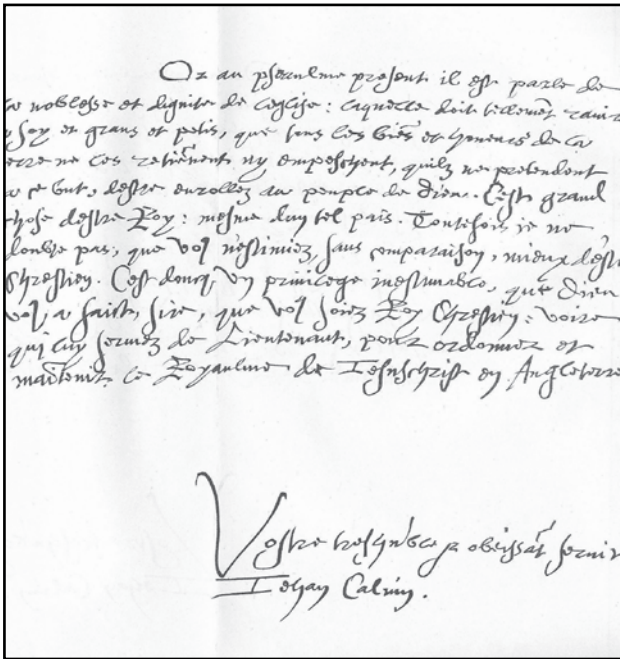 Or au pseaulme present il est parle de
la noblesse et dignite de leglise: laquelle doit tellemẽt ravir
a soy et grans et petis, que tous les biẽs et honeurs de la
terre ne les retiẽnent ny empeschent, quilz ne pretendent
a ce but, destre enrollez au peuple de Dieu. Cest grand
chose destre Roy: mesme dun tel pais. Toutefois je ne
doubte pas, que vous nestimiez, sans comparaison, mieux destre
Chrestien. Cest doncq un privilege inestimable, que Dieu
vous a faict, sire, que vous soiez Roy Chrestien: voire
qui luy servez de Lieutenant, pour ordonner et
maĩtenir le Royaulme de Iesuschrist en Angleterre
Vostre treshũble & obeissãt servit
Iehan Calvin.